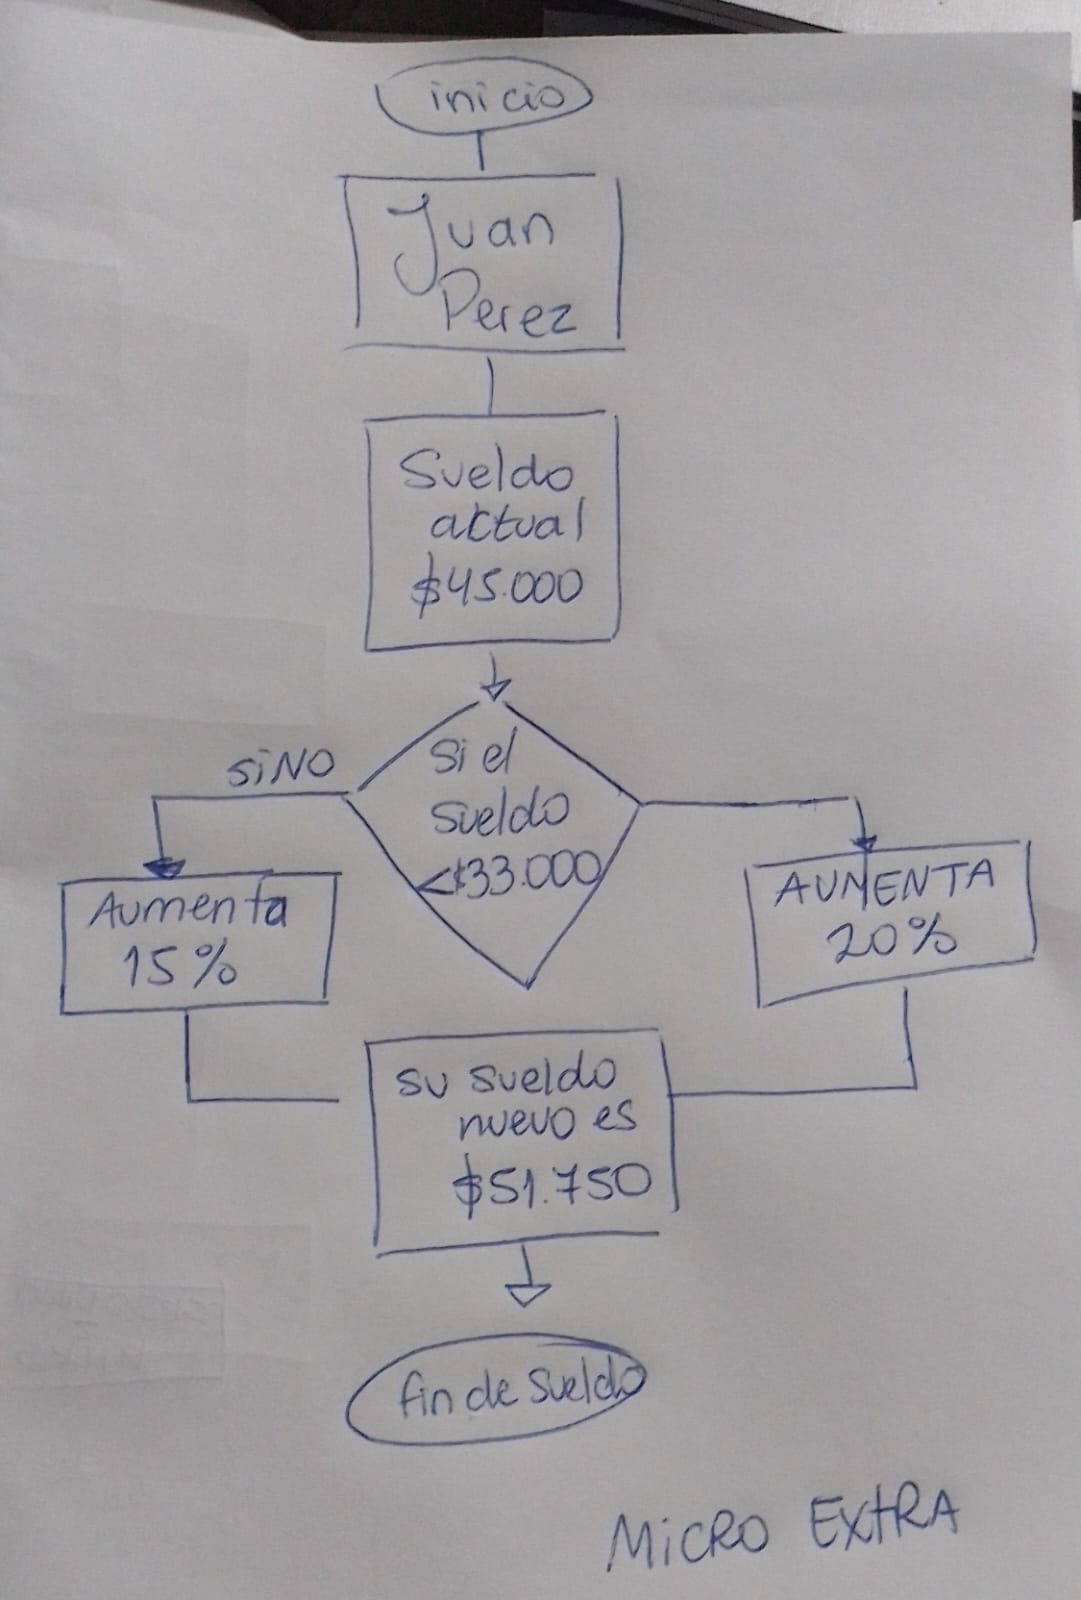 inicio
Juan
Perez
Sueldo
actual
$45.000
Si el
sueldo
<$33.000
SiNO
Aumenta
15%
AUMENTA
20%
su sueldo
nuevo es
$51.750
fin de sueldo
MiCRO EXtRA